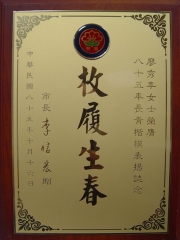 廖寶李女士榮膺
八十五年長青楷模表揚誌念
杖履生春
市長 李
中華民國八十五年十月十六日